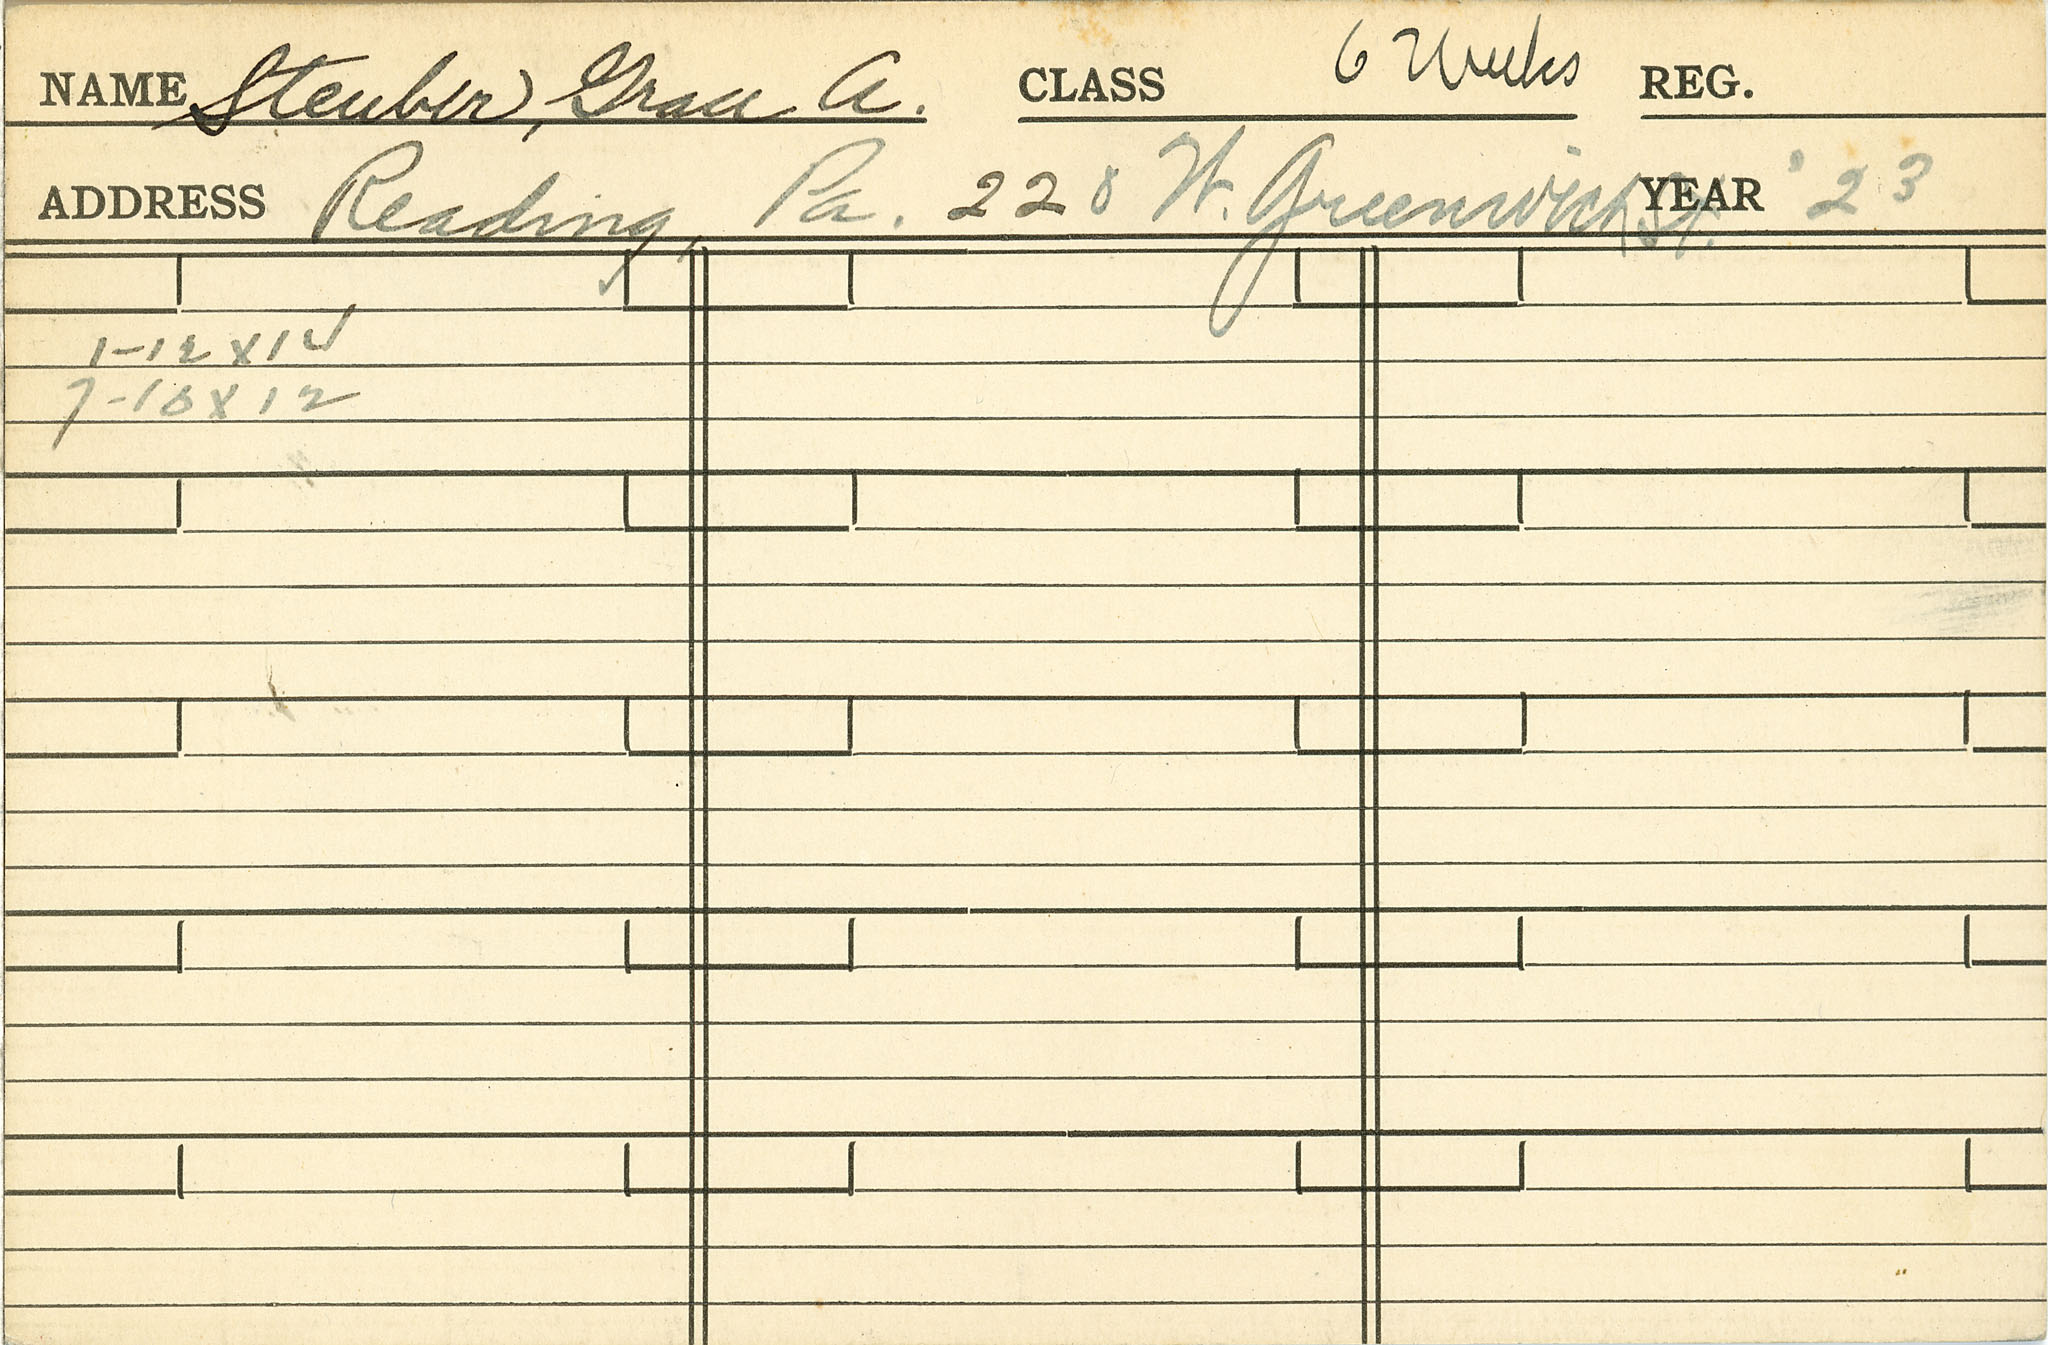 NAME Steuber, Grace A. CLASS 6 Weeks REG.
ADDRESS Reading, Pa. 228 W. Greenwich St. YEAR '23
1-12 x 14
7-10 x 12